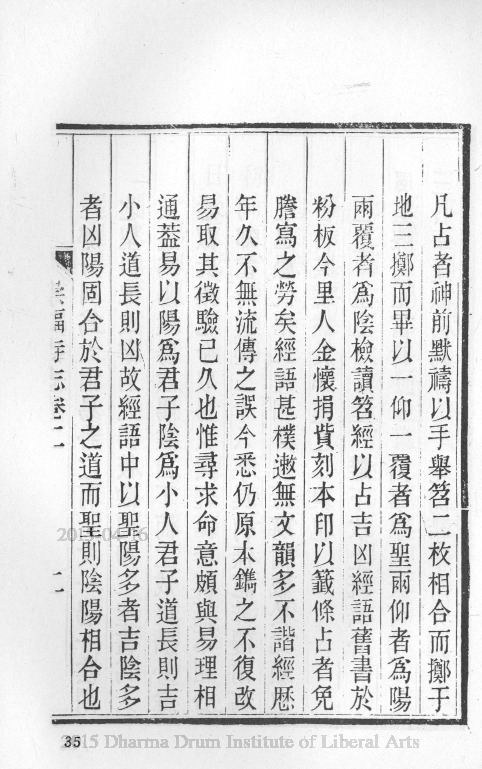 凡占者神前默禱以手舉笤二枚相合而擲于
地三擲而畢以一仰一覆者為聖兩仰者為陽
兩覆者為陰檢讀笤經以占吉凶經語舊書於
粉板今里人金懷捐貲刻本印以籤條占者免
謄寫之勞矣經語甚樸遬無文韻多不諧經歷
年久不無流傳之誤今悉仍原本鐫之不復改
易取其徵驗已久也惟尋求命意頗與易理相
通葢易以陽為君子陰為小人君子道長則吉
小人道長則凶故經語中以聖陽多者吉陰多
者凶陽固合於君子之道而聖則陰陽相合也
福寺志卷二
35
2015 Dharma Drum Institute of Liberal Arts